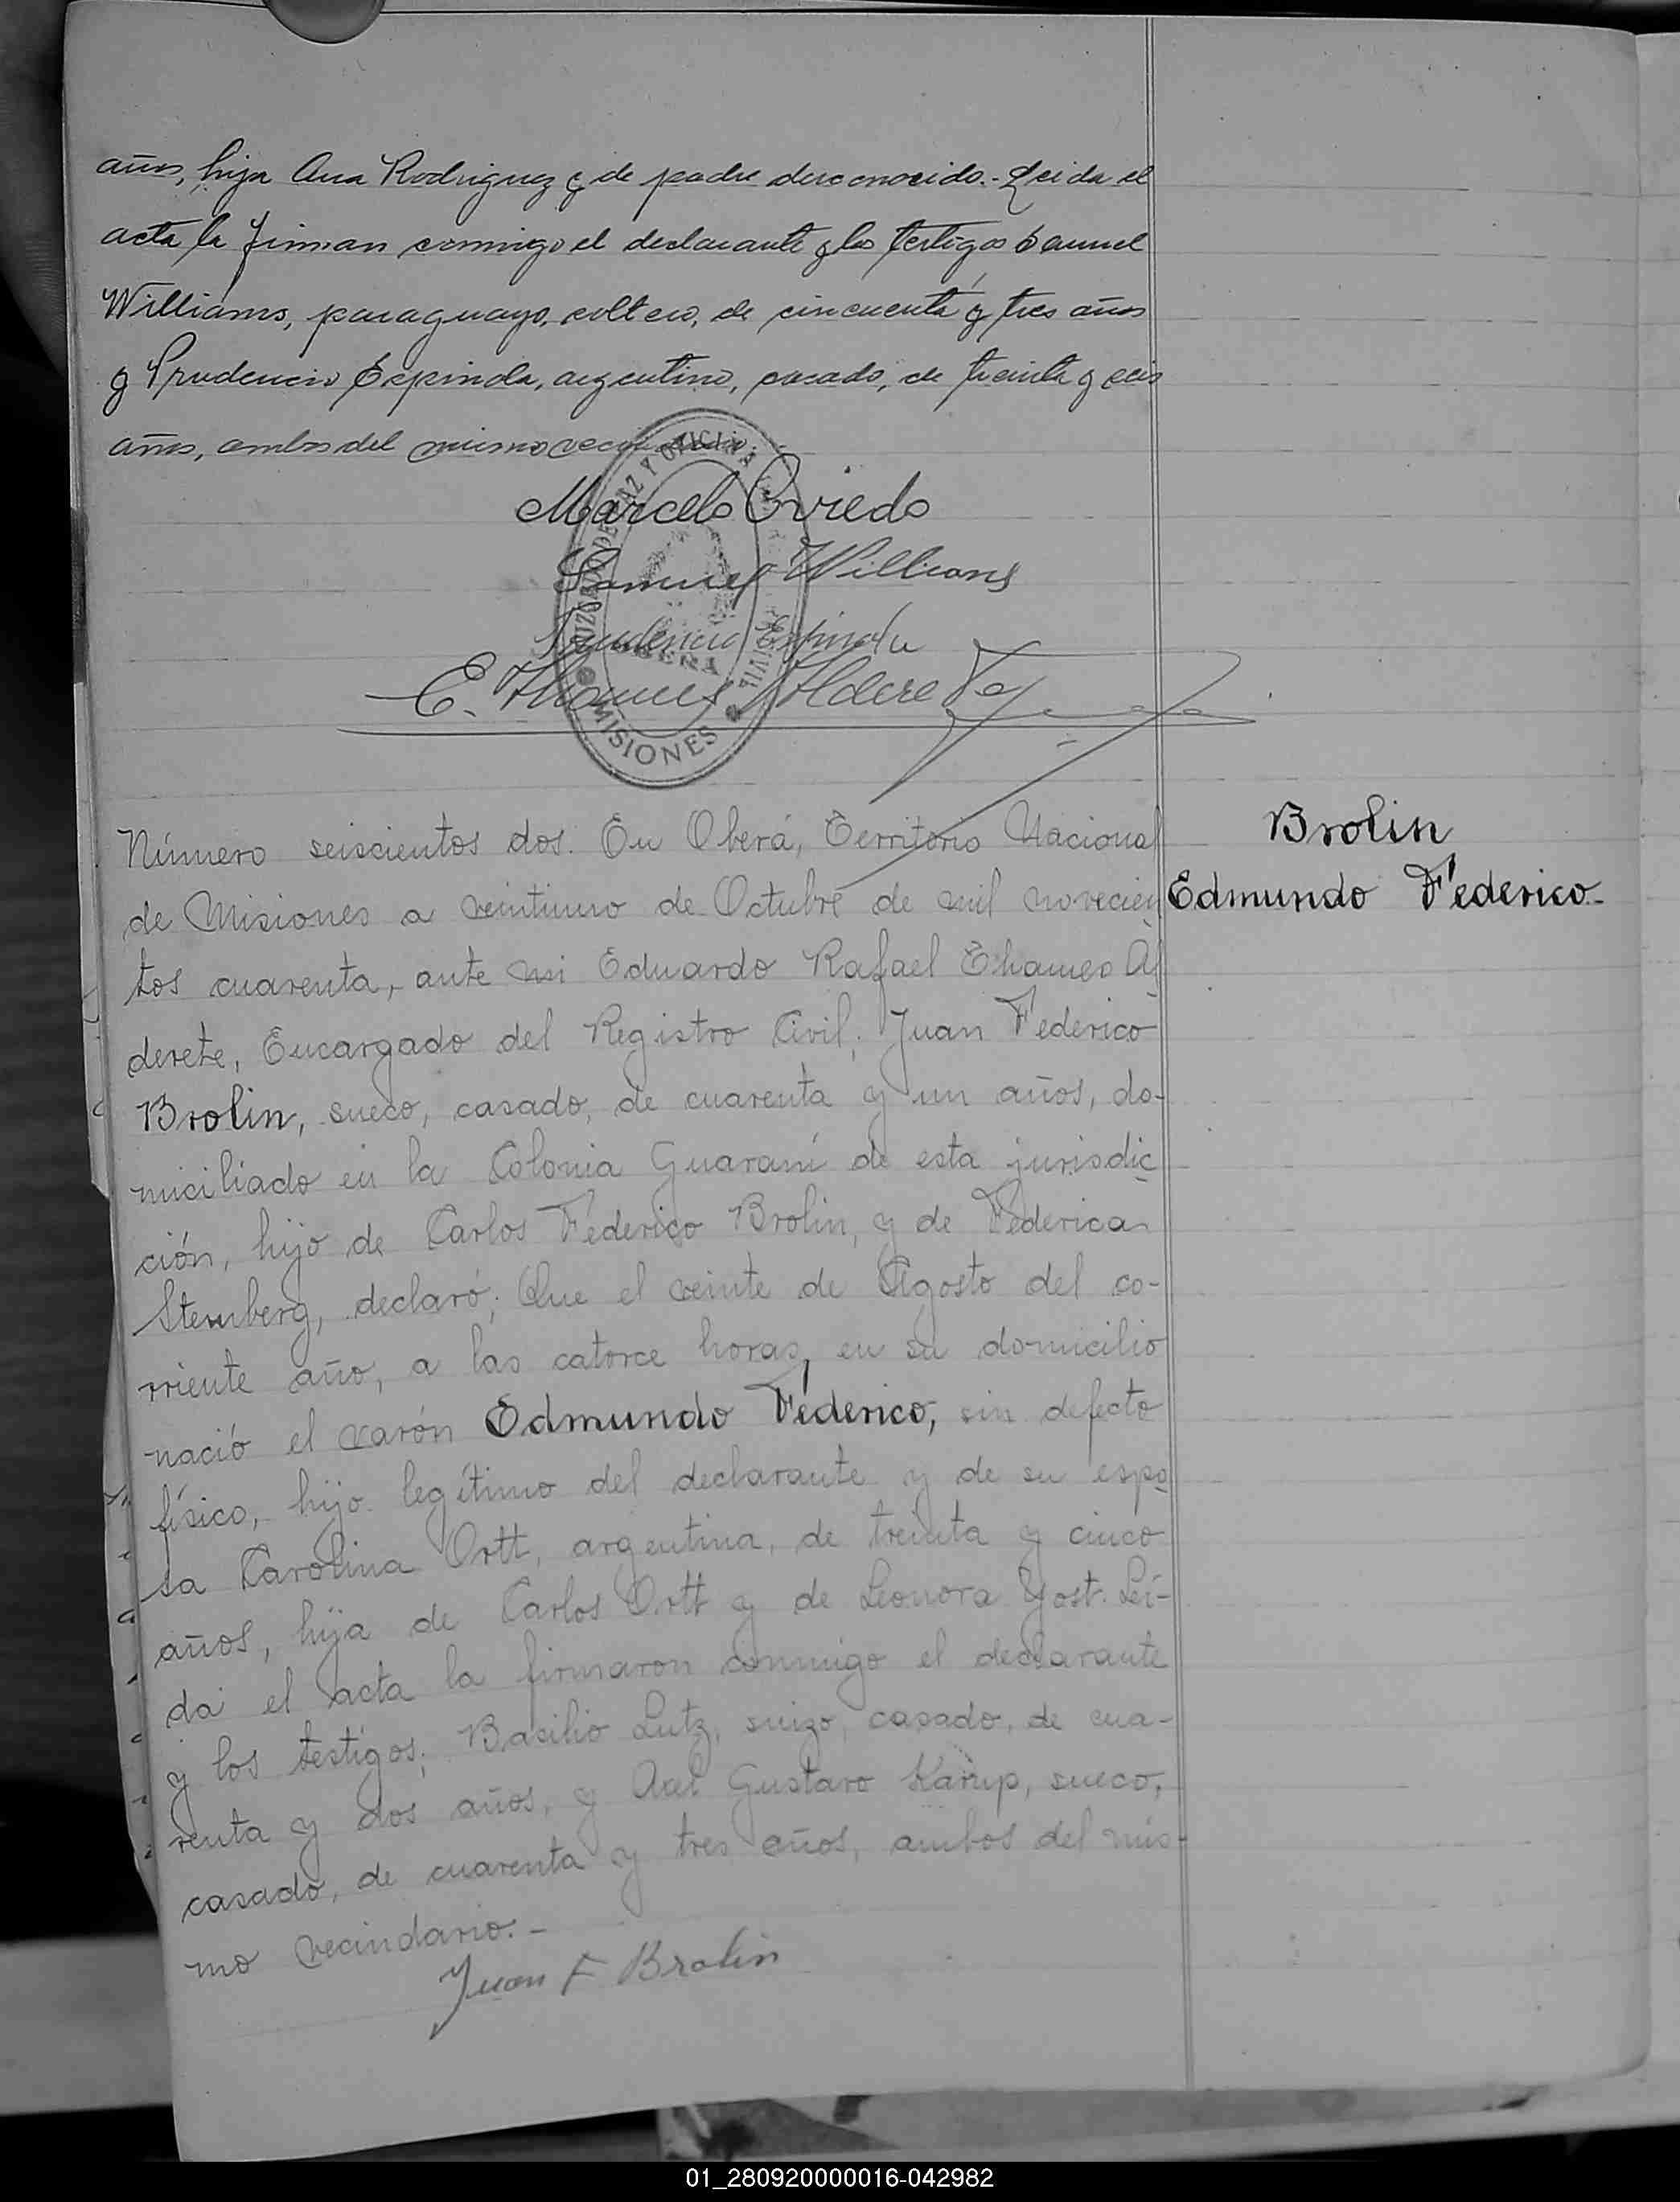 años, hija Ana Rodriguez y de padre desconocido.- Leida el
acta la firman conmigo el declarante y los testigos Samuel
Williams, paraguayo, soltero, de cincuenta y tres años
y Prudencio Espindola, argentino, casado, de treinta y seis
años, ambos del mismo
Marcelo Oviedo
Samuel Willians
Prudencio Espindola
E. Thames Alderete
MISIONES
Número seiscientos dos. En Oberá, Territorio Nacional
de Misiones a veintiuno de Octubre de mil novecien
tos cuarenta, ante mi Eduardo Rafael Thames Al
derete, Encargado del Registro Civil; Juan Federico
Brolin, sueco, casado, de cuarenta y un años, do-
miciliado en la Colonia Guaraní de esta jurisdic
ción, hijo de Carlos Federico Brolin, y de Federica
Sternberg, declaró; Que el veinte de Agosto del co-
rriente año, a las catorce horas, en su domicilio
nació el varón Edmundo Federico, sin defecto
físico, hijo legítimo del declarante y de su espo
sa Carolina Ortt, argentina, de treinta y cinco
años, hija de Carlos Ortt y de Leonora Yost. Leí-
da el acta la firmaron conmigo el declarante
y los testigos; Basilio Lutz, suizo, casado, de cua-
renta y dos años, y Axel Gustavo Karup, sueco,
casado, de cuarenta y tres años, ambos del mis-
mo vecindario.-
Juan F Brolin
Brolin
Edmundo Federico.-
01_280920000016-042982